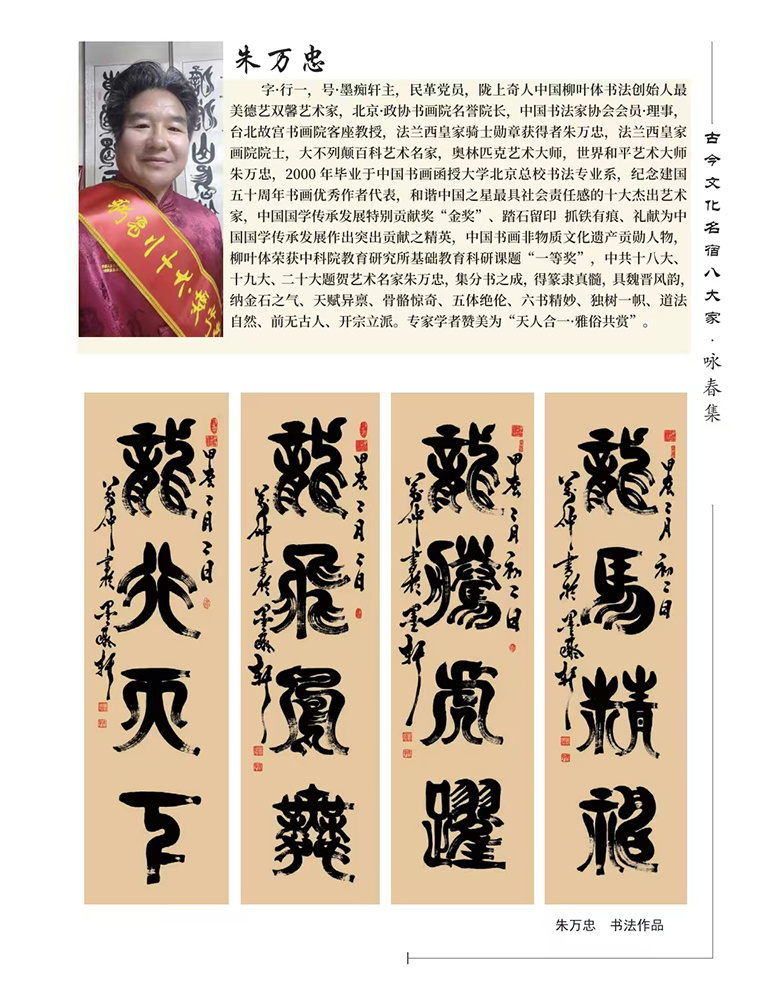 朱万忠
字·行一，号·墨痴轩主，民革党员，陇上奇人中国柳叶体书法创始人最
美德艺双馨艺术家，北京·政协书画院名誉院长，中国书法家协会会员·理事，
台北故宫书画院客座教授，法兰西皇家骑士勋章获得者朱万忠，法兰西皇家
画院院士，大不列颠百科艺术名家，奥林匹克艺术大师，世界和平艺术大师
朱万忠，2000 年毕业于中国书画函授大学北京总校书法专业系，纪念建国
五十周年书画优秀作者代表，和谐中国之星最具社会责任感的十大杰出艺术
家，中国国学传承发展特别贡献奖“金奖”、踏石留印 抓铁有痕、礼献为中
国国学传承发展作出突出贡献之精英，中国书画非物质文化遗产贡勋人物，
柳叶体荣获中科院教育研究所基础教育科研课题“一等奖”，中共十八大、
十九大、二十大题贺艺术名家朱万忠，集分书之成，得篆隶真髓，具魏晋风韵，
纳金石之气、天赋异禀、骨骼惊奇、五体绝伦、六书精妙、独树一帜、道法
自然、前无古人、开宗立派。专家学者赞美为“天人合一·雅俗共赏”。
古今文化名宿八大家·咏春集
龍行天下
二月二日
書於墨痴轩
龍飛鳳舞
二月二日
書於墨痴轩
龍騰虎躍
二月初二日
書於墨轩
龍馬精神
二月初二日
書於墨痴轩
朱万忠　书法作品